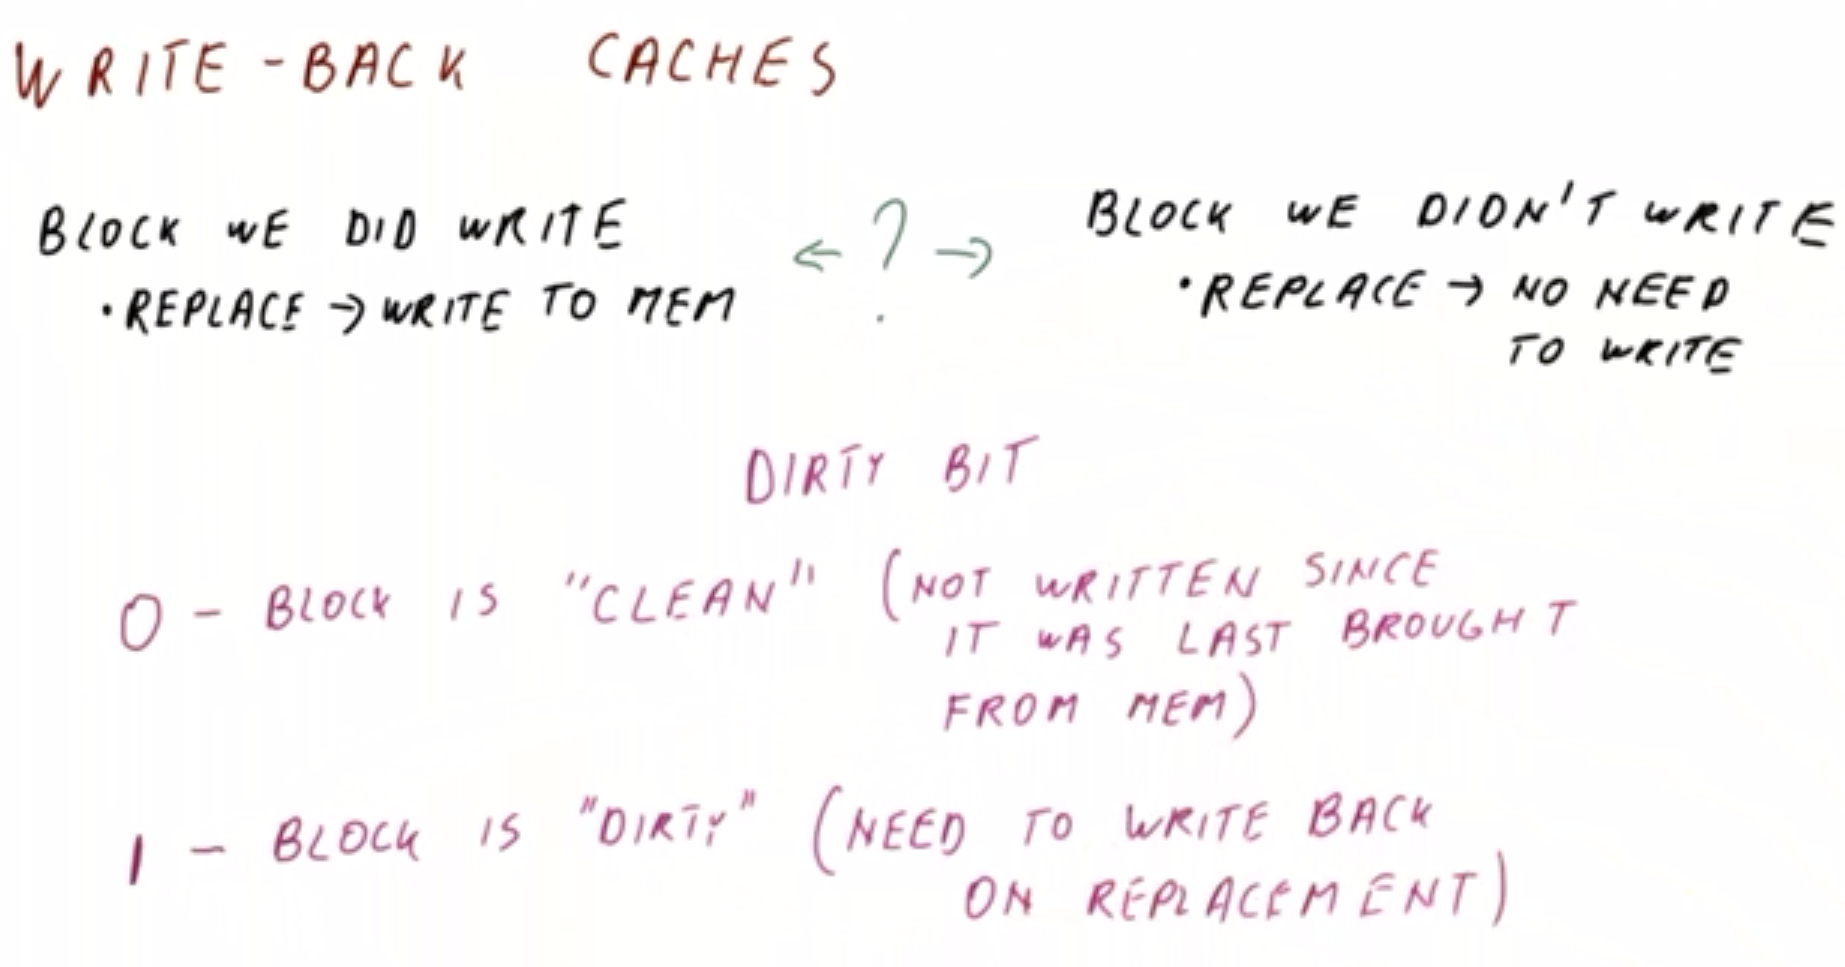 WRITE-BACK CACHES
BLOCK WE DID WRITE
• REPLACE → WRITE TO MEM
← ? →
BLOCK WE DIDN'T WRITE
• REPLACE → NO NEED
TO WRITE
DIRTY BIT
0 - BLOCK IS "CLEAN" (NOT WRITTEN SINCE
IT WAS LAST BROUGHT
FROM MEM)
1 - BLOCK IS "DIRTY" (NEED TO WRITE BACK
ON REPLACEMENT)